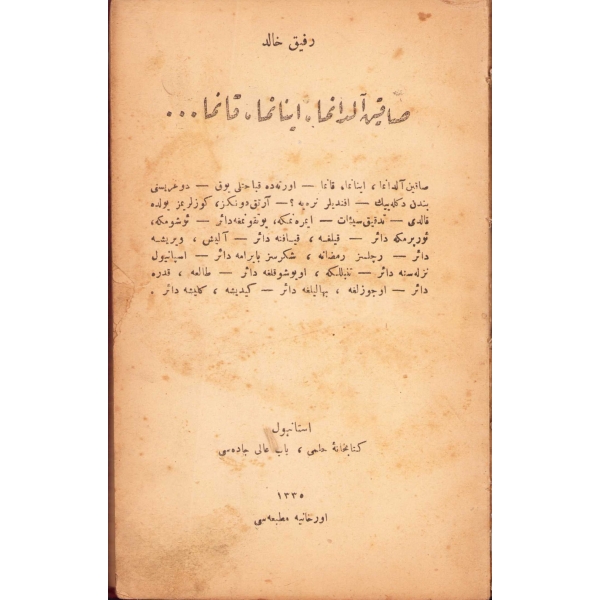 رفيق خالد
صاقين آلدانما، اينانما، قانما...
صاقين آلدانما ، اينانما، قانما — اورته‌ده قباحتلى يوق — دوغريسنى
بندن دكله‌ييك — افنديلر نره‌يه ؟ — آرتق دونكز، كوزلريمز يولده
قالدى — تدقيق سيئات — ايمره‌نمكه، يوتقونمغه‌دائر — ئوشومكه،
ئورپرمكه دائر — قيلغه ، قيافته دائر — آليش ، ويريشه
دائر — رجلسز رمضانه ، شكرسز بايرامه دائر — اسپانيول
نزله‌سنه دائر — تنبللكه، اويوشوقلغه دائر — طالعه ، قدره
دائر — اوجوزلغه ، بهاليلغه دائر — كيديشه ، كليشه دائر .
استانبول
كتابخانهٔ حلمى ، باب عالى جاده‌سى
١٣٣٥
اورخانيه مطبعه‌سى